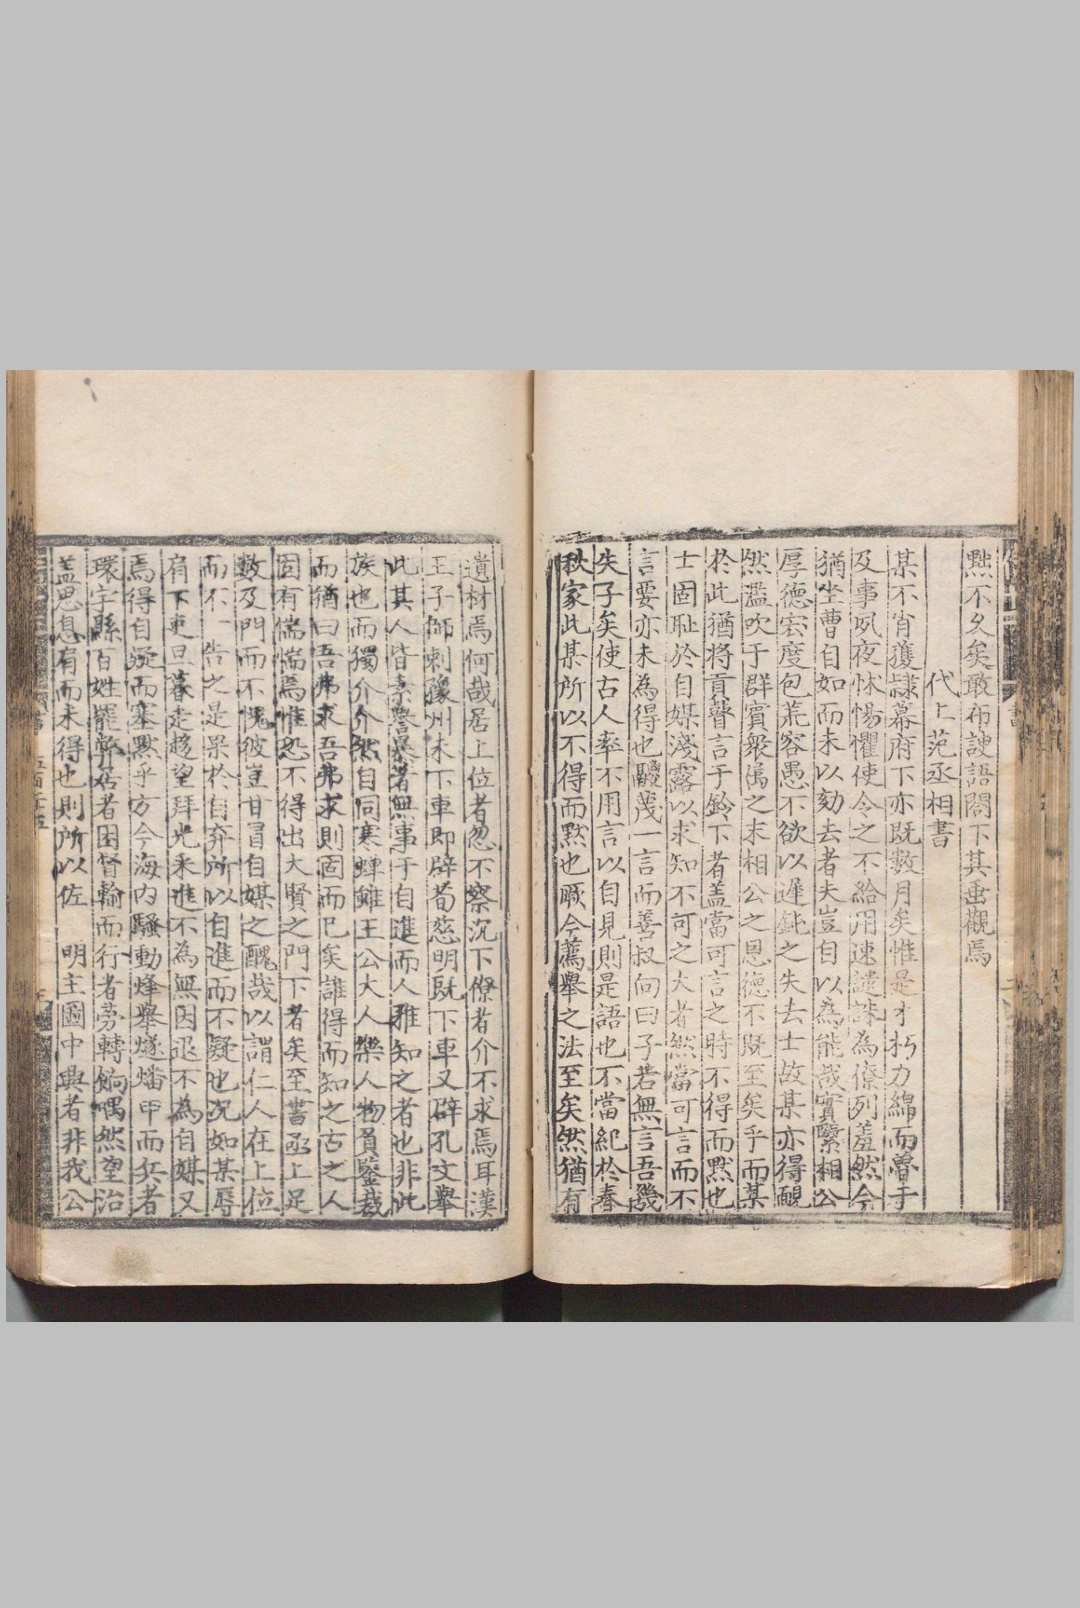 黙不久矣敢布諛語閤下其垂觀焉
代上范丞相書
某不肯獲隷幕府下亦既数月矣惟是才朽力綿而魯于
及事夙夜怵惕懼使令之不給用速譴誅為僚列羞然今
猶坐曹自如而未以劾去者夫豈自以為能哉實繄相公
厚德宏度包荒容愚不欲以遲鈍之失去士故某亦得靦
然濫吹于群賓衆儁之末相公之恩德不既至矣乎而某
於此猶將貢瞽言于鈴下者盖當可言之時不得而黙也
士固恥於自媒淺露以求知不可之大者然當可言而不
言要亦未為得也鬷蔑一言而善叔向曰子若無言吾幾
失子矣使古人率不用言以自見則是語也不當紀於春
秋家此某所以不得而黙也厥今薦舉之法至矣然猶有
遺材焉何哉居上位者忽不察沉下僚者介不求焉耳漢
王子師刺豫州未下車即辟荀慈明既下車又辟孔文舉
此其人皆素警暴著無事于自進而人雅知之者也非此
族也而獨介介然自同寒蟬雖王公大人樂人物負鑒裁
而猶曰吾弗求吾弗求則固而已矣誰得而知之古之人
固有惴惴焉惟恐不得出大賢之門下者矣至書亟上足
数及門而不愧彼豈甘冒自媒之醜哉以謂仁人在上位
而不一告之是果於自弃所以自進而不疑也况如某辱
肩下吏旦暮走趍望拜光采進不為無因退不為自媒又
焉得自疑而塞黙乎方今海内騷動烽舉燧燔甲而兵者
環宇縣百姓罷弊居者困督輸而行者勞轉餉喁然望治
盖思息肩而未得也則所以佐　明主圖中興者非我公